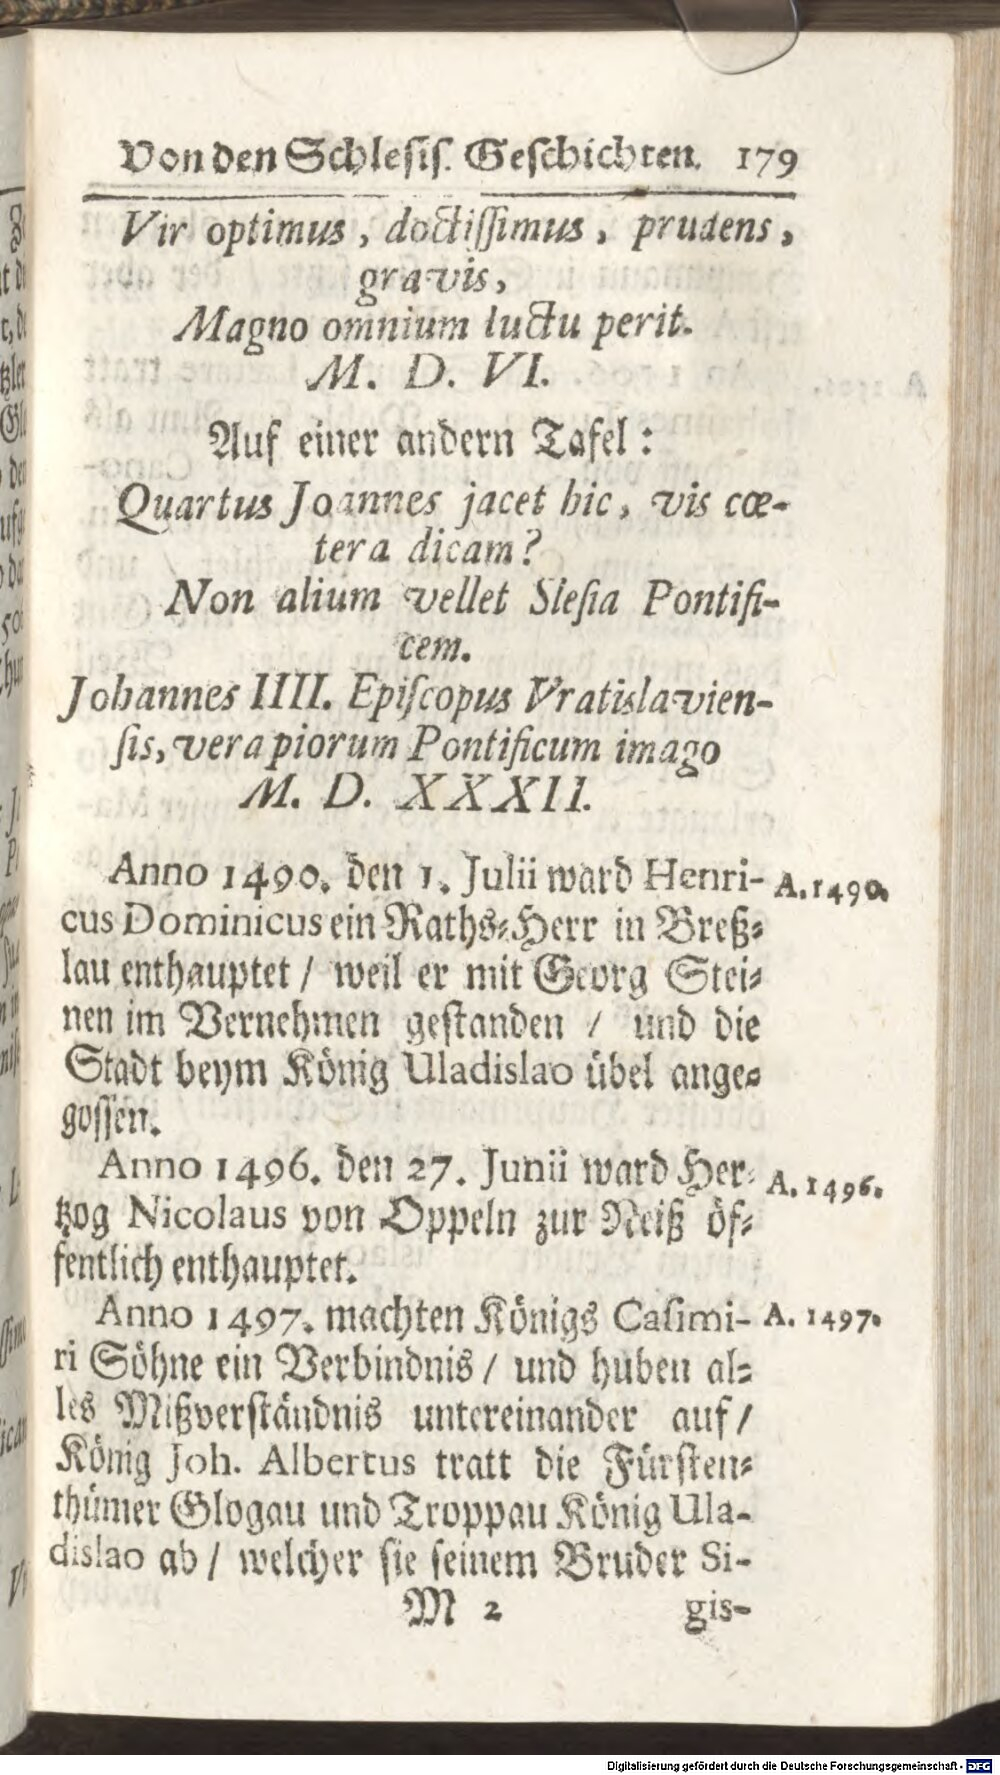 Von den Schlesis. Geschichten. 179
Vir optimus, doctissimus, prudens,
gravis,
Magno omnium luctu perit.
M. D. VI.
Auf einer andern Tafel:
Quartus Joannes jacet hic, vis cœ-
tera dicam?
Non alium vellet Slesia Pontifi-
cem.
Johannes IIII. Episcopus Vratislavien-
sis, vera piorum Pontificum imago
M. D. XXXII.
Anno 1490. den 1. Julii ward Henri- A. 1490.
cus Dominicus ein Raths-Herr in Breß-
lau enthauptet / weil er mit Georg Stei-
nen im Vernehmen gestanden / und die
Stadt beym König Uladislao übel ange-
gossen.
Anno 1496. den 27. Junii ward Her- A. 1496.
tzog Nicolaus von Oppeln zur Neiß öf-
fentlich enthauptet.
Anno 1497. machten Königs Casimi- A. 1497.
ri Söhne ein Verbindnis / und huben al-
les Mißverständnis untereinander auf /
König Joh. Albertus tratt die Fürsten-
thümer Glogau und Troppau König Ula-
dislao ab / welcher sie seinem Bruder Si-
M 2 gis-
Digitalisierung gefördert durch die Deutsche Forschungsgemeinschaft - DFG